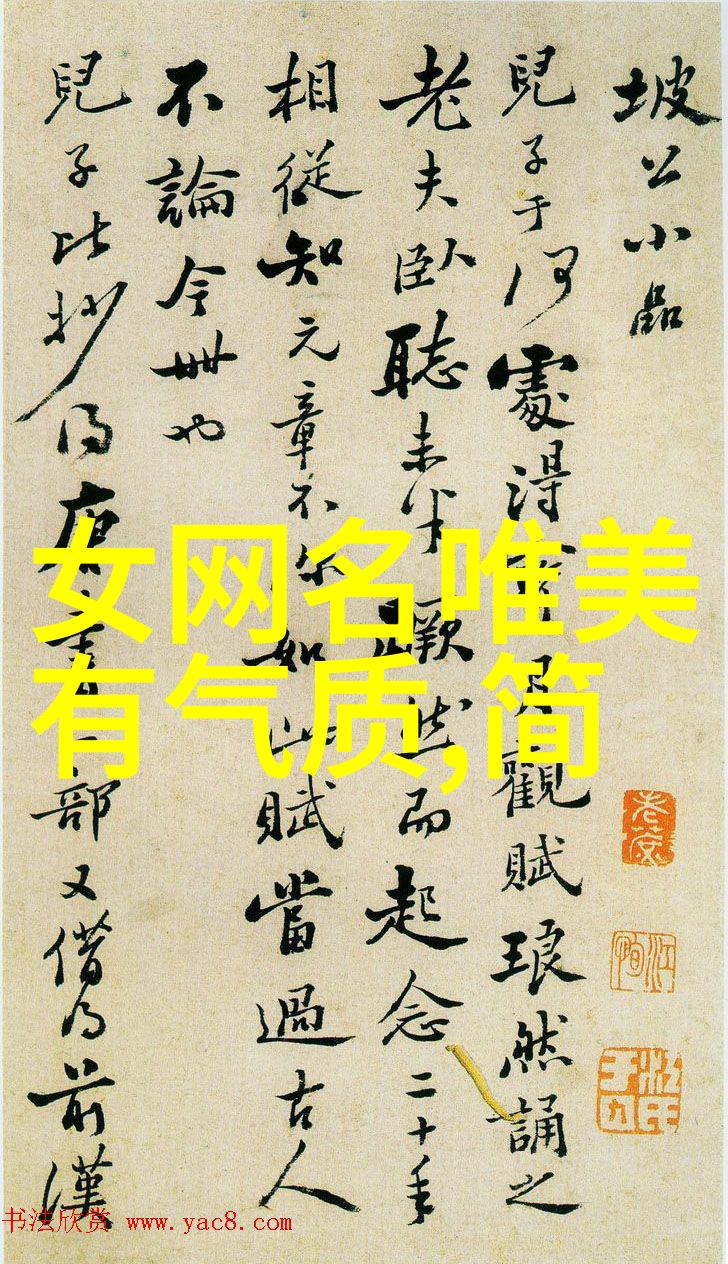 坡公小品
兒子于何處得月觀賦琅然誦之
老夫臥聽未半蹶然而起念二十年
相從知元章不如此賦當過古人
不論今世也
兒子比抄得唐書一部又借得前漢
女网名唯美
有气质,简
书法欣赏 www.yac8.com